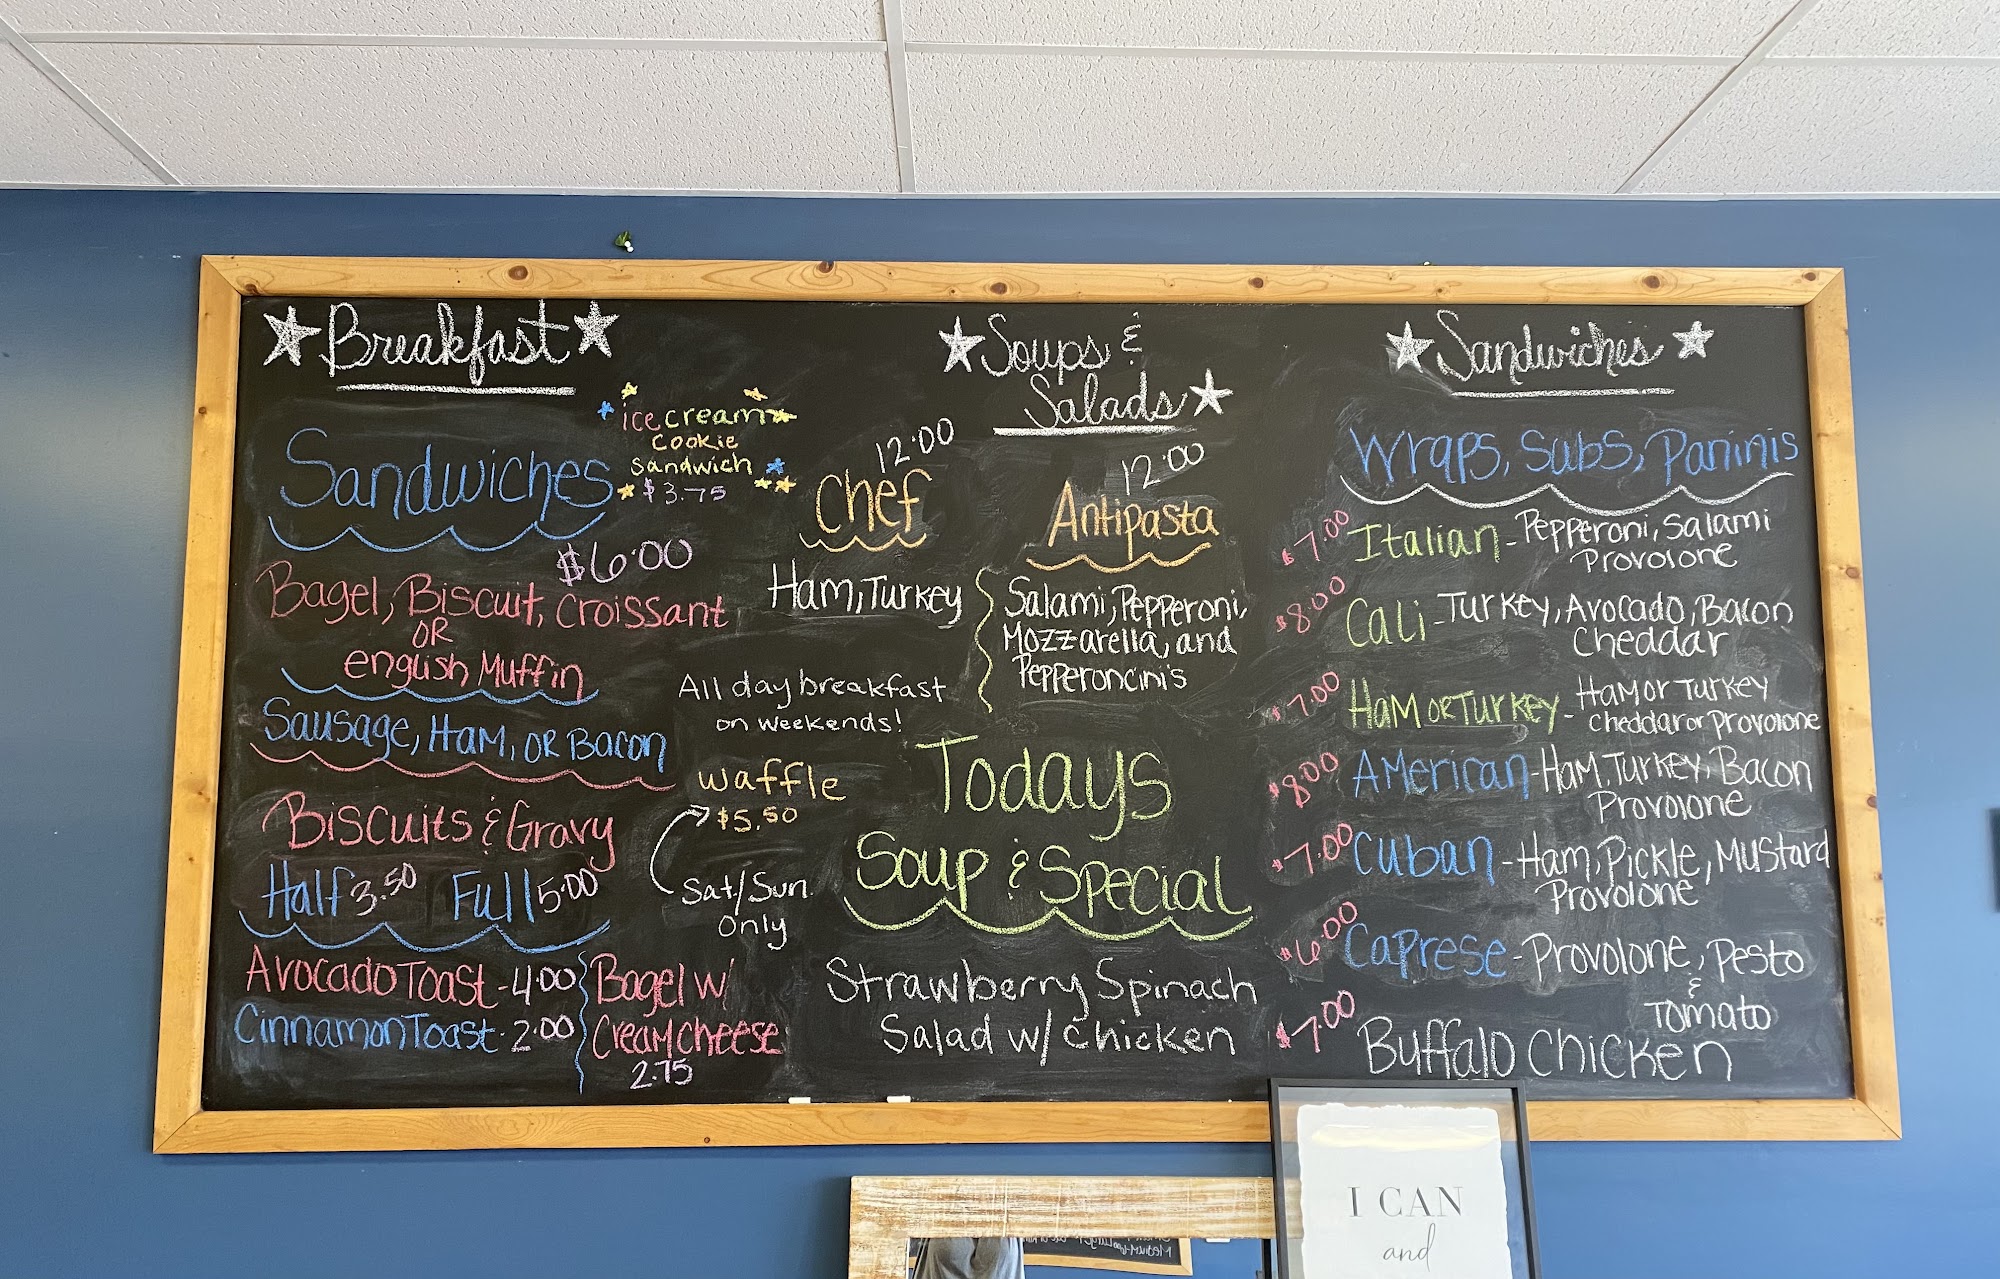 Breakfast
ice cream
cookie
sandwich
$3.75
Sandwiches
$6.00
Bagel, Biscuit, Croissant
OR
English Muffin
Sausage, Ham, OR Bacon
Biscuits & Gravy
Half 3.50 Full 5.00
Avocado Toast - 4.00
Cinnamon Toast - 2.00
Bagel w/
Cream cheese
2.75
All day breakfast
on weekends!
waffle
$5.50
Sat/Sun.
Only
Soups &
Salads
12.00
Chef
Ham, Turkey
12.00
Antipasta
Salami, Pepperoni,
Mozzarella, and
Pepperoncini's
Todays
Soup & Special
Strawberry Spinach
Salad w/ chicken
Sandwiches
Wraps, Subs, Paninis
$7.00 Italian - Pepperoni, Salami
Provolone
$8.00 Cali - Turkey, Avocado, Bacon
Cheddar
$7.00 Ham or Turkey - Ham or Turkey
cheddar or Provolone
$8.00 American - Ham, Turkey, Bacon
Provolone
$7.00 Cuban - Ham, Pickle, Mustard
Provolone
$6.00 Caprese - Provolone, Pesto
&
Tomato
$7.00 Buffalo Chicken
I CAN
and